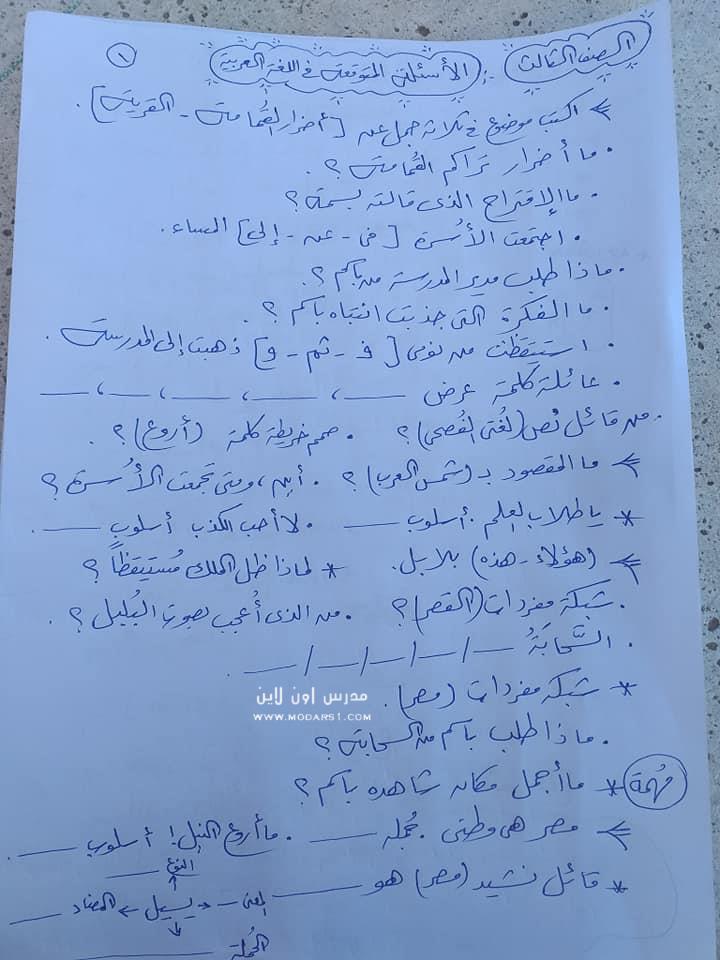 الصف الثالث :- الأسئلة المتوقعة في اللغة العربية ١
اكتب موضوع في ثلاثة جمل عن [أضرار القمامة - القرية].
. ما أضرار تراكم القُمامة؟
. ما الإقتراح الذى قالته بسمة؟
. اجتمعت الأسرة [فى - عن - إلى] المساء.
. ماذا طلب مدير المدرسة من باسم؟
. ما الفكرة التى جذبت انتباه باسم؟
. استيقظت من نومى [ف - ثم - و] ذهبت إلى المدرسة.
. عائلة كلمة عرض ـــ، ـــ، ـــ، ـــ، ـــ
. من قائل نص (لغتى الفُصحى)؟ . صمم خريطة كلمة (أروع)؟
ما المقصود بـ (شمس العرب)؟ . أين، ومتى تجمعت الأُسرة؟
* يا طلاب العِلم . أسلوب ـــ . لا أحب الكذب أسلوب ـــ.
(هؤلاء - هذه) بلابل. * لماذا ظل الملك مُستيقظاً؟
. شبكة مفردات (القصر)؟ . من الذى أُعجب بصوت البُلبل؟
. السَّحابَةُ ـــ/ـــ/ـــ/ـــ/ـــ.
* شبكة مفردات (مصر).
مدرس اون لاين
WWW.MODARS1.COM
. ماذا طلب باسم من السحابة؟
مُهمة * ما أجمل مكان شاهده باسم؟
مصر هى وطنى . جُملة ـــ . ما أروع النيل! أسلوب ـــ.
* قائل نشيد (مصر) هو ـــ
النوع ـــ
المعنى ـــ ← يسيل → المضاد ـــ
الجُملة ـــ